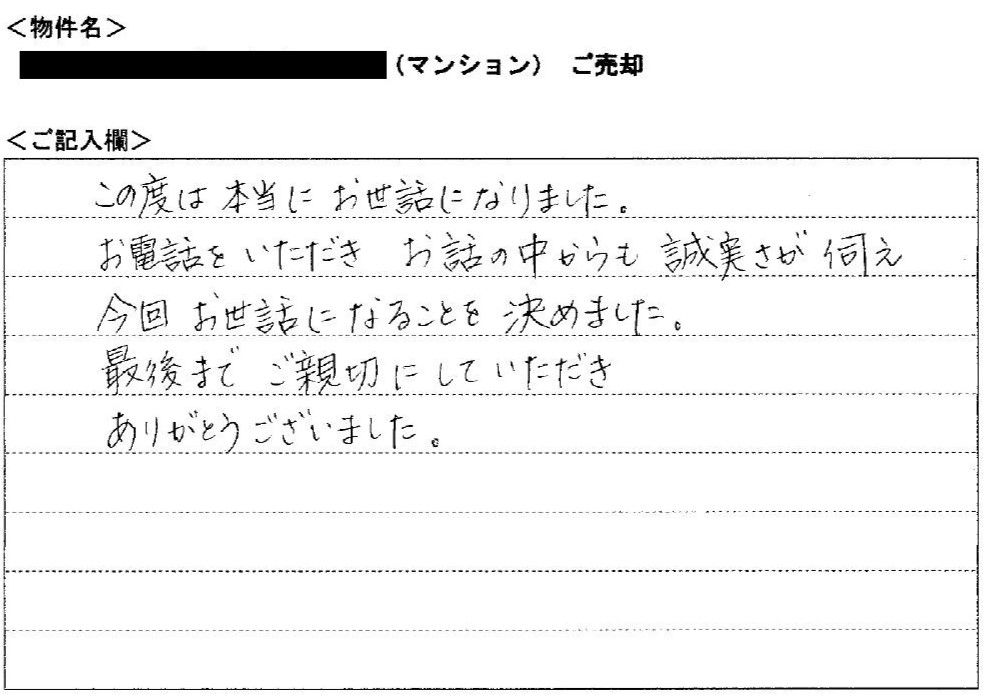 ＜物件名＞
（マンション） ご売却
＜ご記入欄＞
この度は 本当に お世話になりました。
お電話を いただき お話の中からも 誠実さが 伺え
今回 お世話になることを 決めました。
最後まで ご親切にしていただき
ありがとうございました。